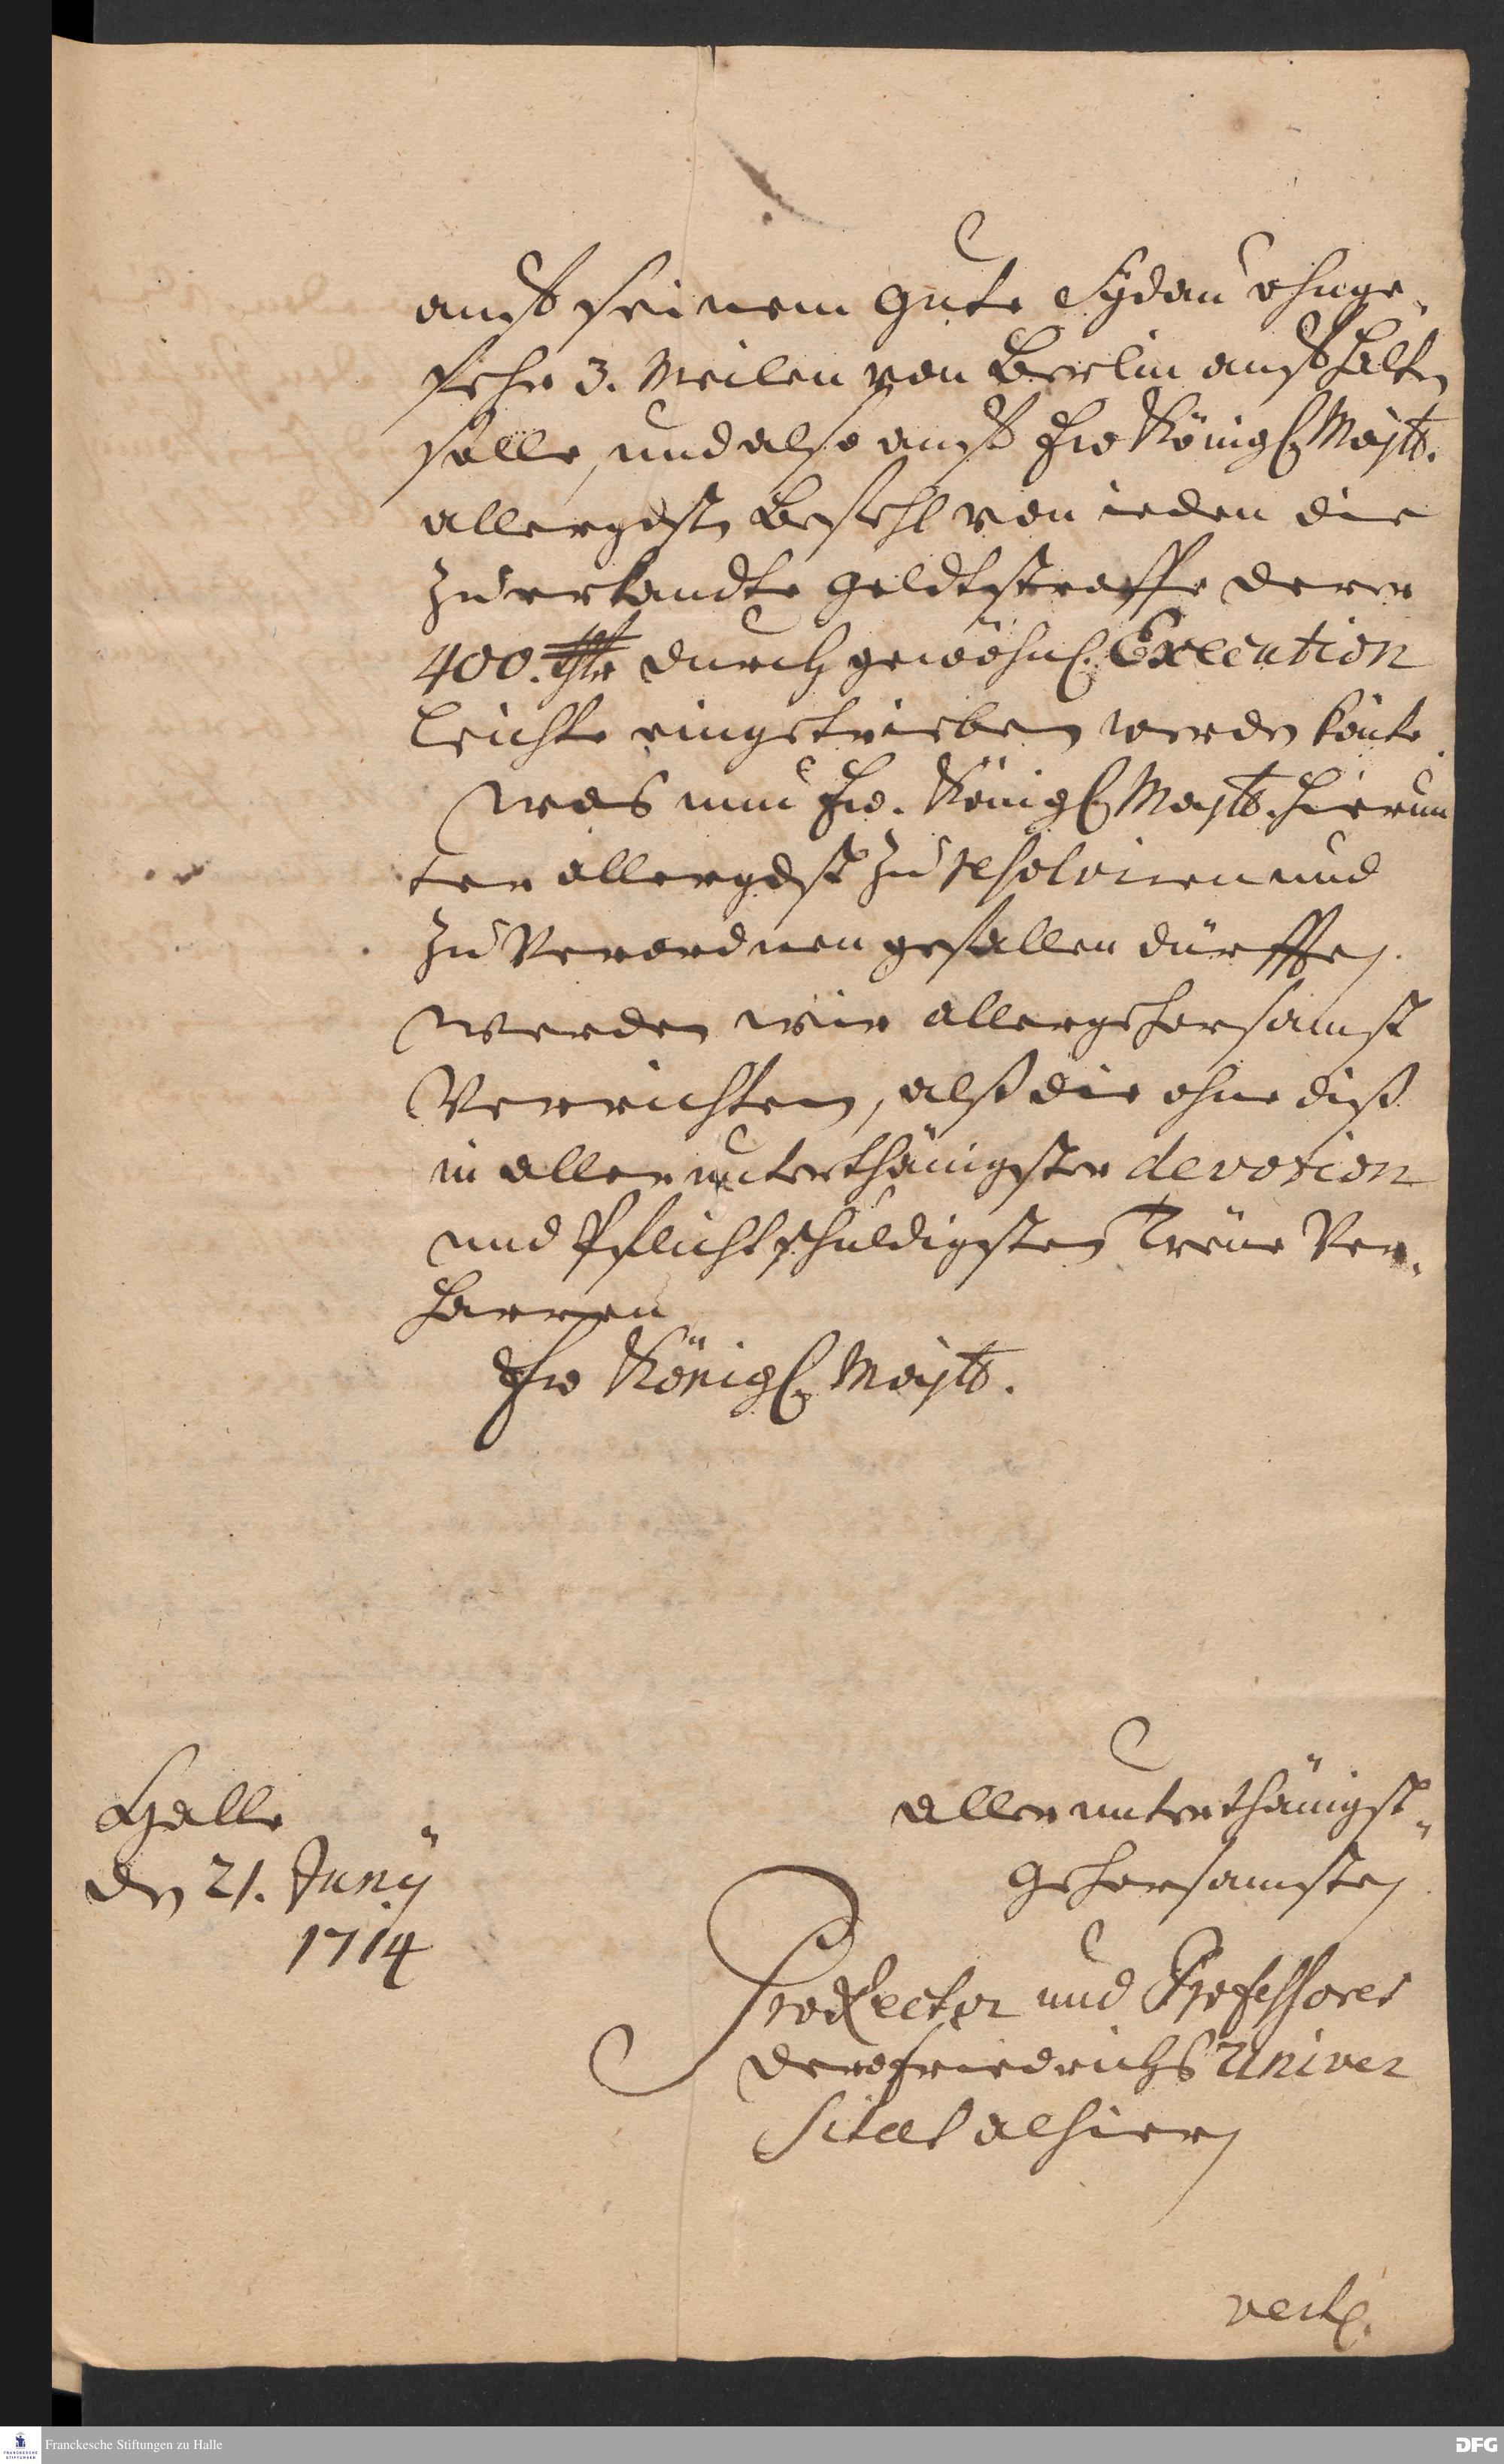 auf seinem Gute Sydau ohnge-
fehr 3. Meilen von Berlin aufhalten
solle, und also auf Ew Königl. Majtt.
allergdsten Befehl von ieden die
zuerkandte Geldtstraffe derer
400. Thlr durch gewöhnl. Execution
leichte eingetrieben werden könte.
Was nun Ew. Königl. Majtt. hierun
ter allergdst zu resolviren und
zu Verordnen gefallen dürffen
werden wir allergehorsamst
Verrichten, alß die ohne diß
in allerunterthänigster devotion
und Pflichtschuldigsten Treüe Ver-
harren
Ew Königl. Majtt.
Halle
den 21. Junÿ
1714
allerunterthänigst-
gehorsamsten
ProRector und Professores
dero Friedrichs Univer
sitaet alhier
vert.
Franckesche Stiftungen zu Halle
DFG